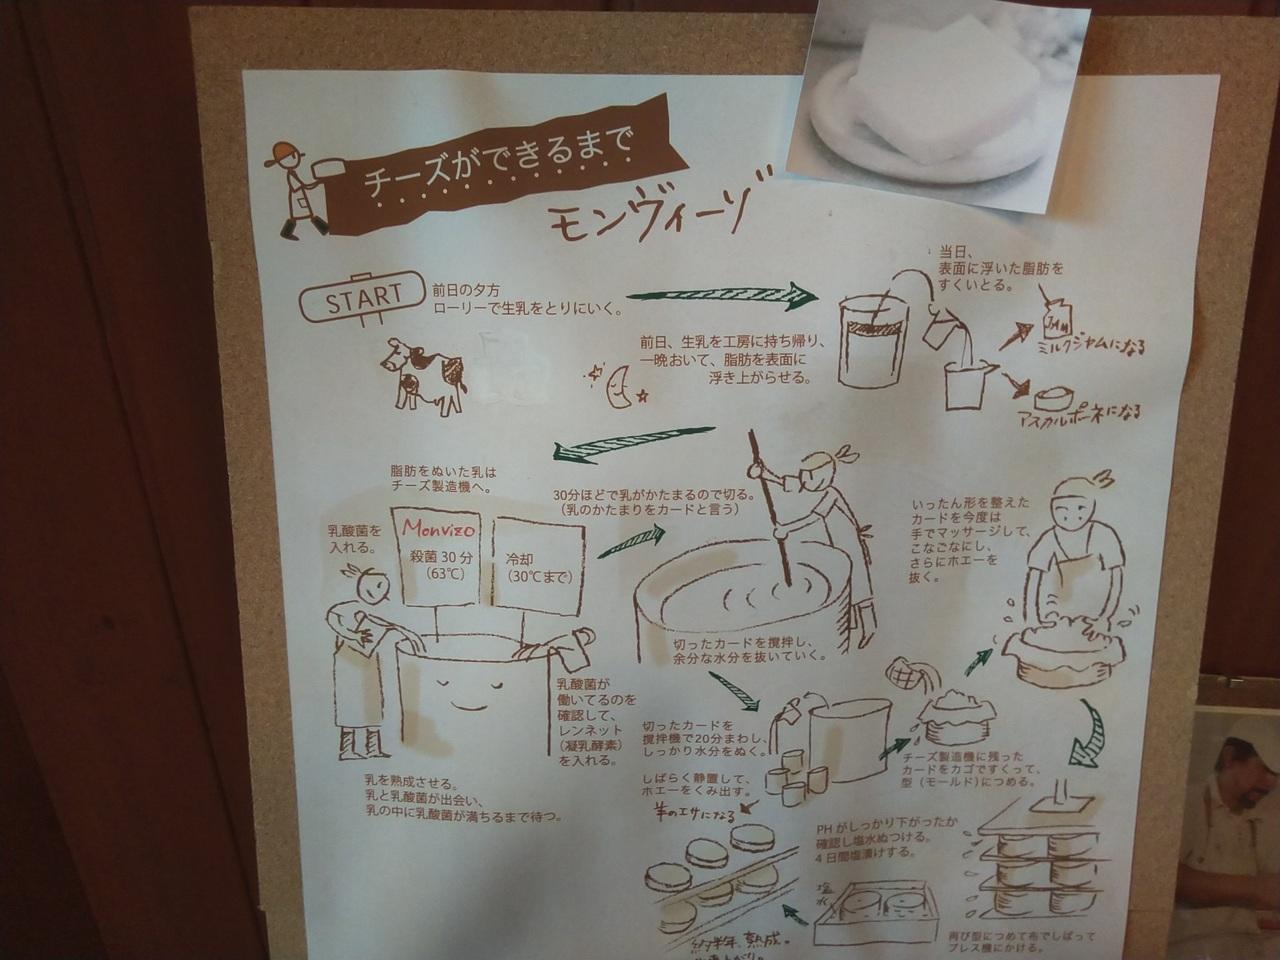 チーズができるまで
モンヴィーゾ
START
前日の夕方
ローリーで生乳をとりにいく。
前日、生乳を工房に持ち帰り、
一晩おいて、脂肪を表面に
浮き上がらせる。
当日、
表面に浮いた脂肪を
すくいとる。
JAM
ミルクジャムになる
アスカルポーネになる
脂肪をぬいた乳は
チーズ製造機へ。
乳酸菌を
入れる。
Monvizo
殺菌 30 分
(63℃)
冷却
(30℃まで)
乳酸菌が
働いてるのを
確認して、
レンネット
(凝乳酵素)
を入れる。
乳を熟成させる。
乳と乳酸菌が出会い、
乳の中に乳酸菌が満ちるまで待つ。
30分ほどで乳がかたまるので切る。
(乳のかたまりをカードと言う)
切ったカードを攪拌し、
余分な水分を抜いていく。
切ったカードを
攪拌機で20分まわし、
しっかり水分をぬく。
しばらく静置して、
ホエーをくみ出す。
羊のエサになる
チーズ製造機に残った
カードをカゴですくって、
型（モールド)につめる。
いったん形を整えた
カードを今度は
手でマッサージして、
こなごなにし、
さらにホエーを
抜く。
再び型につめて布でしばって
プレス機にかける。
PH がしっかり下がったか
確認し塩水ぬつける。
4 日間塩漬けする。
塩
水
約半年、熟成。